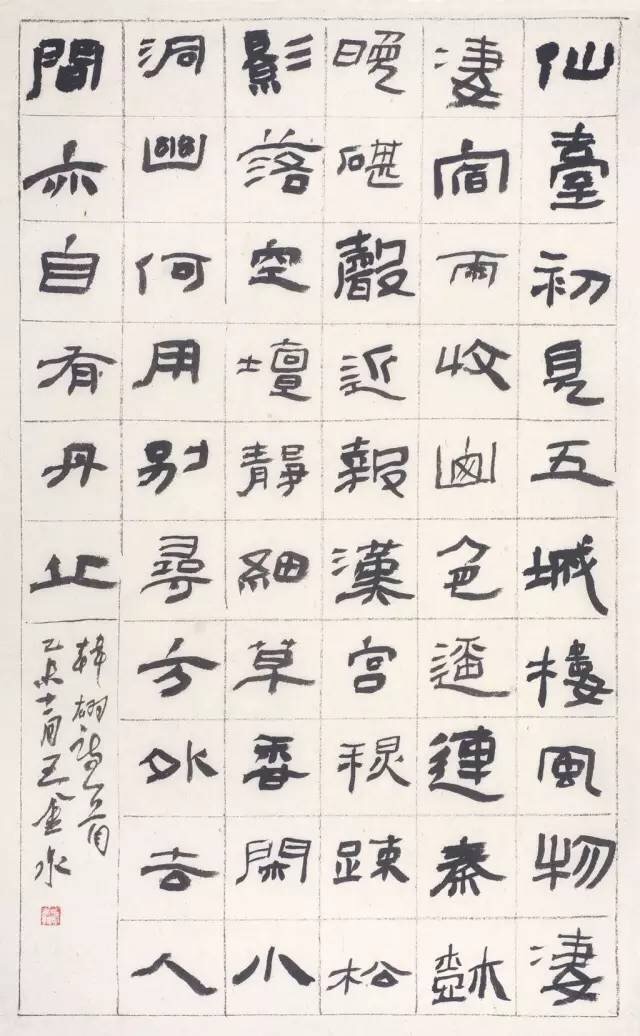 仙臺初見五城樓風物淒
淒宿雨收山色遙連秦樹
晚碪聲近報漢宮秋疎松
影落空壇靜細草香閑小
洞幽何用別尋方外去人
間亦自有丹丘
韓翃詩一首
乙未十二月王金水